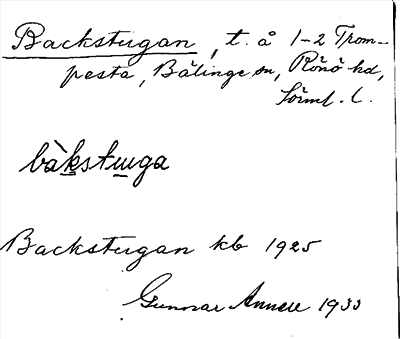 Backstugan, t. å 1-2 Trom-
pesta, Bälinge sn, Rönö hd,
Sörml. l.
bàkstuga
Backstugan kb 1925
Gunnar 1933